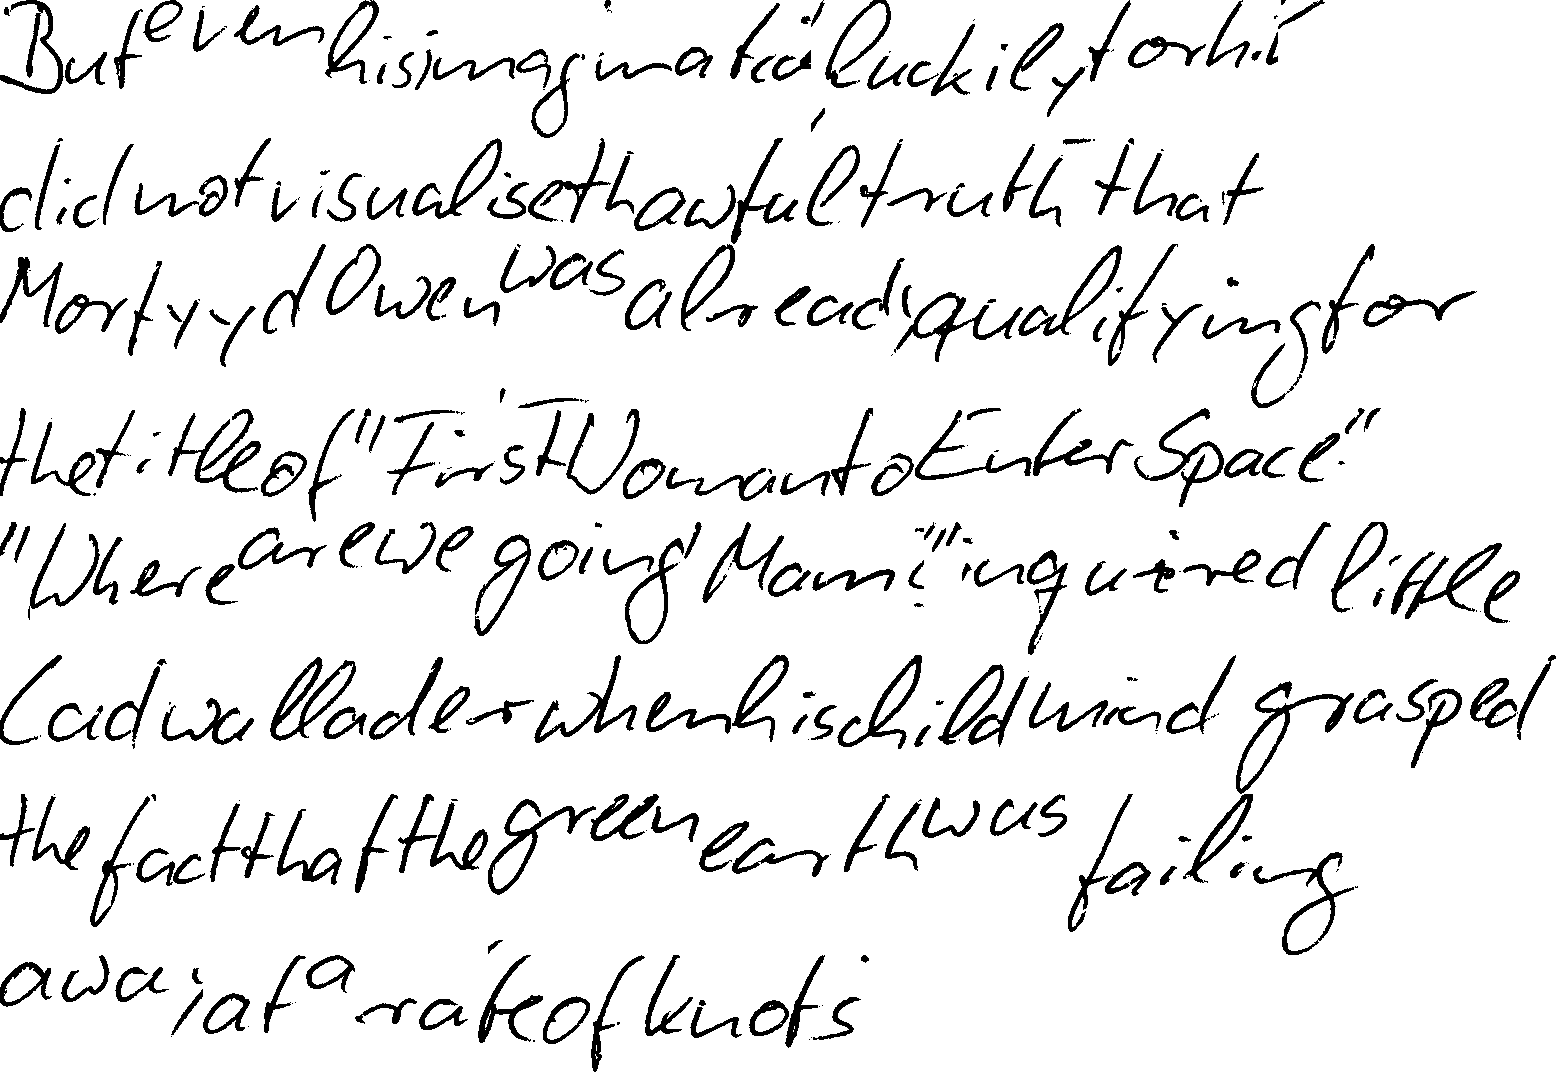 But even his imagination luckily for him
did not visualise the awful truth that
Morfydd Owen was already qualifying for
the title of "First Woman to Enter Space".
"Where are we going Mam?" inquired little
Cadwallader when his child mind grasped
the fact that the green earth was failing
away at a rate of knots